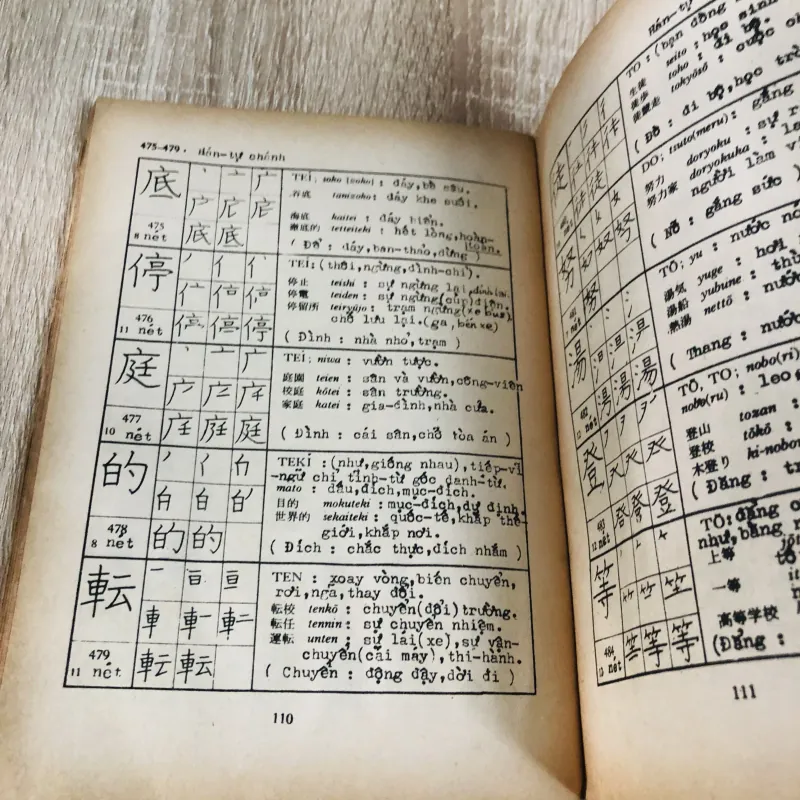 475-479. Hán-tự chánh
底
475
8 nét
TEI; soko (zoko) : đáy, bề sâu.
谷底 tanizoko: đáy khe suối.
海底 kaitei : đáy biển.
徹底的 tetteiteki : hết lòng, hoàn-toàn.
( Để : đáy, ban-thảo, đừng )
停
476
11 nét
TEI: (thôi, ngừng, đình-chỉ).
停止 teishi : sự ngừng lại, đình lại.
停電 teiden : sự ngừng(cúp)điện.
停留所 teiryūjo : trạm ngừng(xe bus)
chỗ lưu lại.(ga, bến xe)
( Đình : nhà nhỏ, trạm )
庭
477
10 nét
TEI; niwa : vườn tược.
庭園 teien : sân và vườn, công-viên
校庭 kōtei : sân trường.
家庭 katei : gia-đình, nhà cửa.
( Đình : cái sân, chỗ tòa án )
的
478
8 nét
TEKI : (như, giống nhau), tiếp-vĩ
-ngữ chỉ tỉnh-từ gốc danh-từ.
mato : dấu, đích, mục-đích.
目的 mokuteki : mục-đích, dự định.
世界的 sekaiteki : quốc-tế, khắp thế-
giới, khắp nơi.
( Đích : chắc thực, đích nhắm )
転
479
11 nét
TEN : xoay vòng, biến chuyển,
rơi, ngã, thay đổi.
転校 tenkō : chuyển(đổi)trường.
転任 tennin : sự chuyển nhiệm.
運転 unten : sự lái(xe), sự vận-
chuyển(cái máy), thi-hành.
( Chuyển : động đậy, dời đi )
110
Hán-tự
TO : (bạn đồng
生徒 seito : học sinh
徒歩 toho : đi bộ.
徒競走 tokyōsō : cuộc ch
(Đồ : đi bộ, học trò
徒
DO; tsuto(meru): gắng
努力 doryoku : sự r
努力家 doryokuka :
người làm vi
( Nỗ : gắng sức )
努
TŌ; yu : nước nó
湯気 yuge : hơi
湯船 yubune : thù
熱湯 nettō : nước
( Thang : nước
湯
12 nét
TŌ, TO; nobo(ri)
nobo(ru) : leo
登山 tozan :
登校 tōkō :
木登り ki-nobo
( Đăng : tr
登
483
12 nét
TŌ: đẳng c
như, bằng n
上等 jōt
一等 it
高等学校
(Đẳng :
等
484
12 nét
111